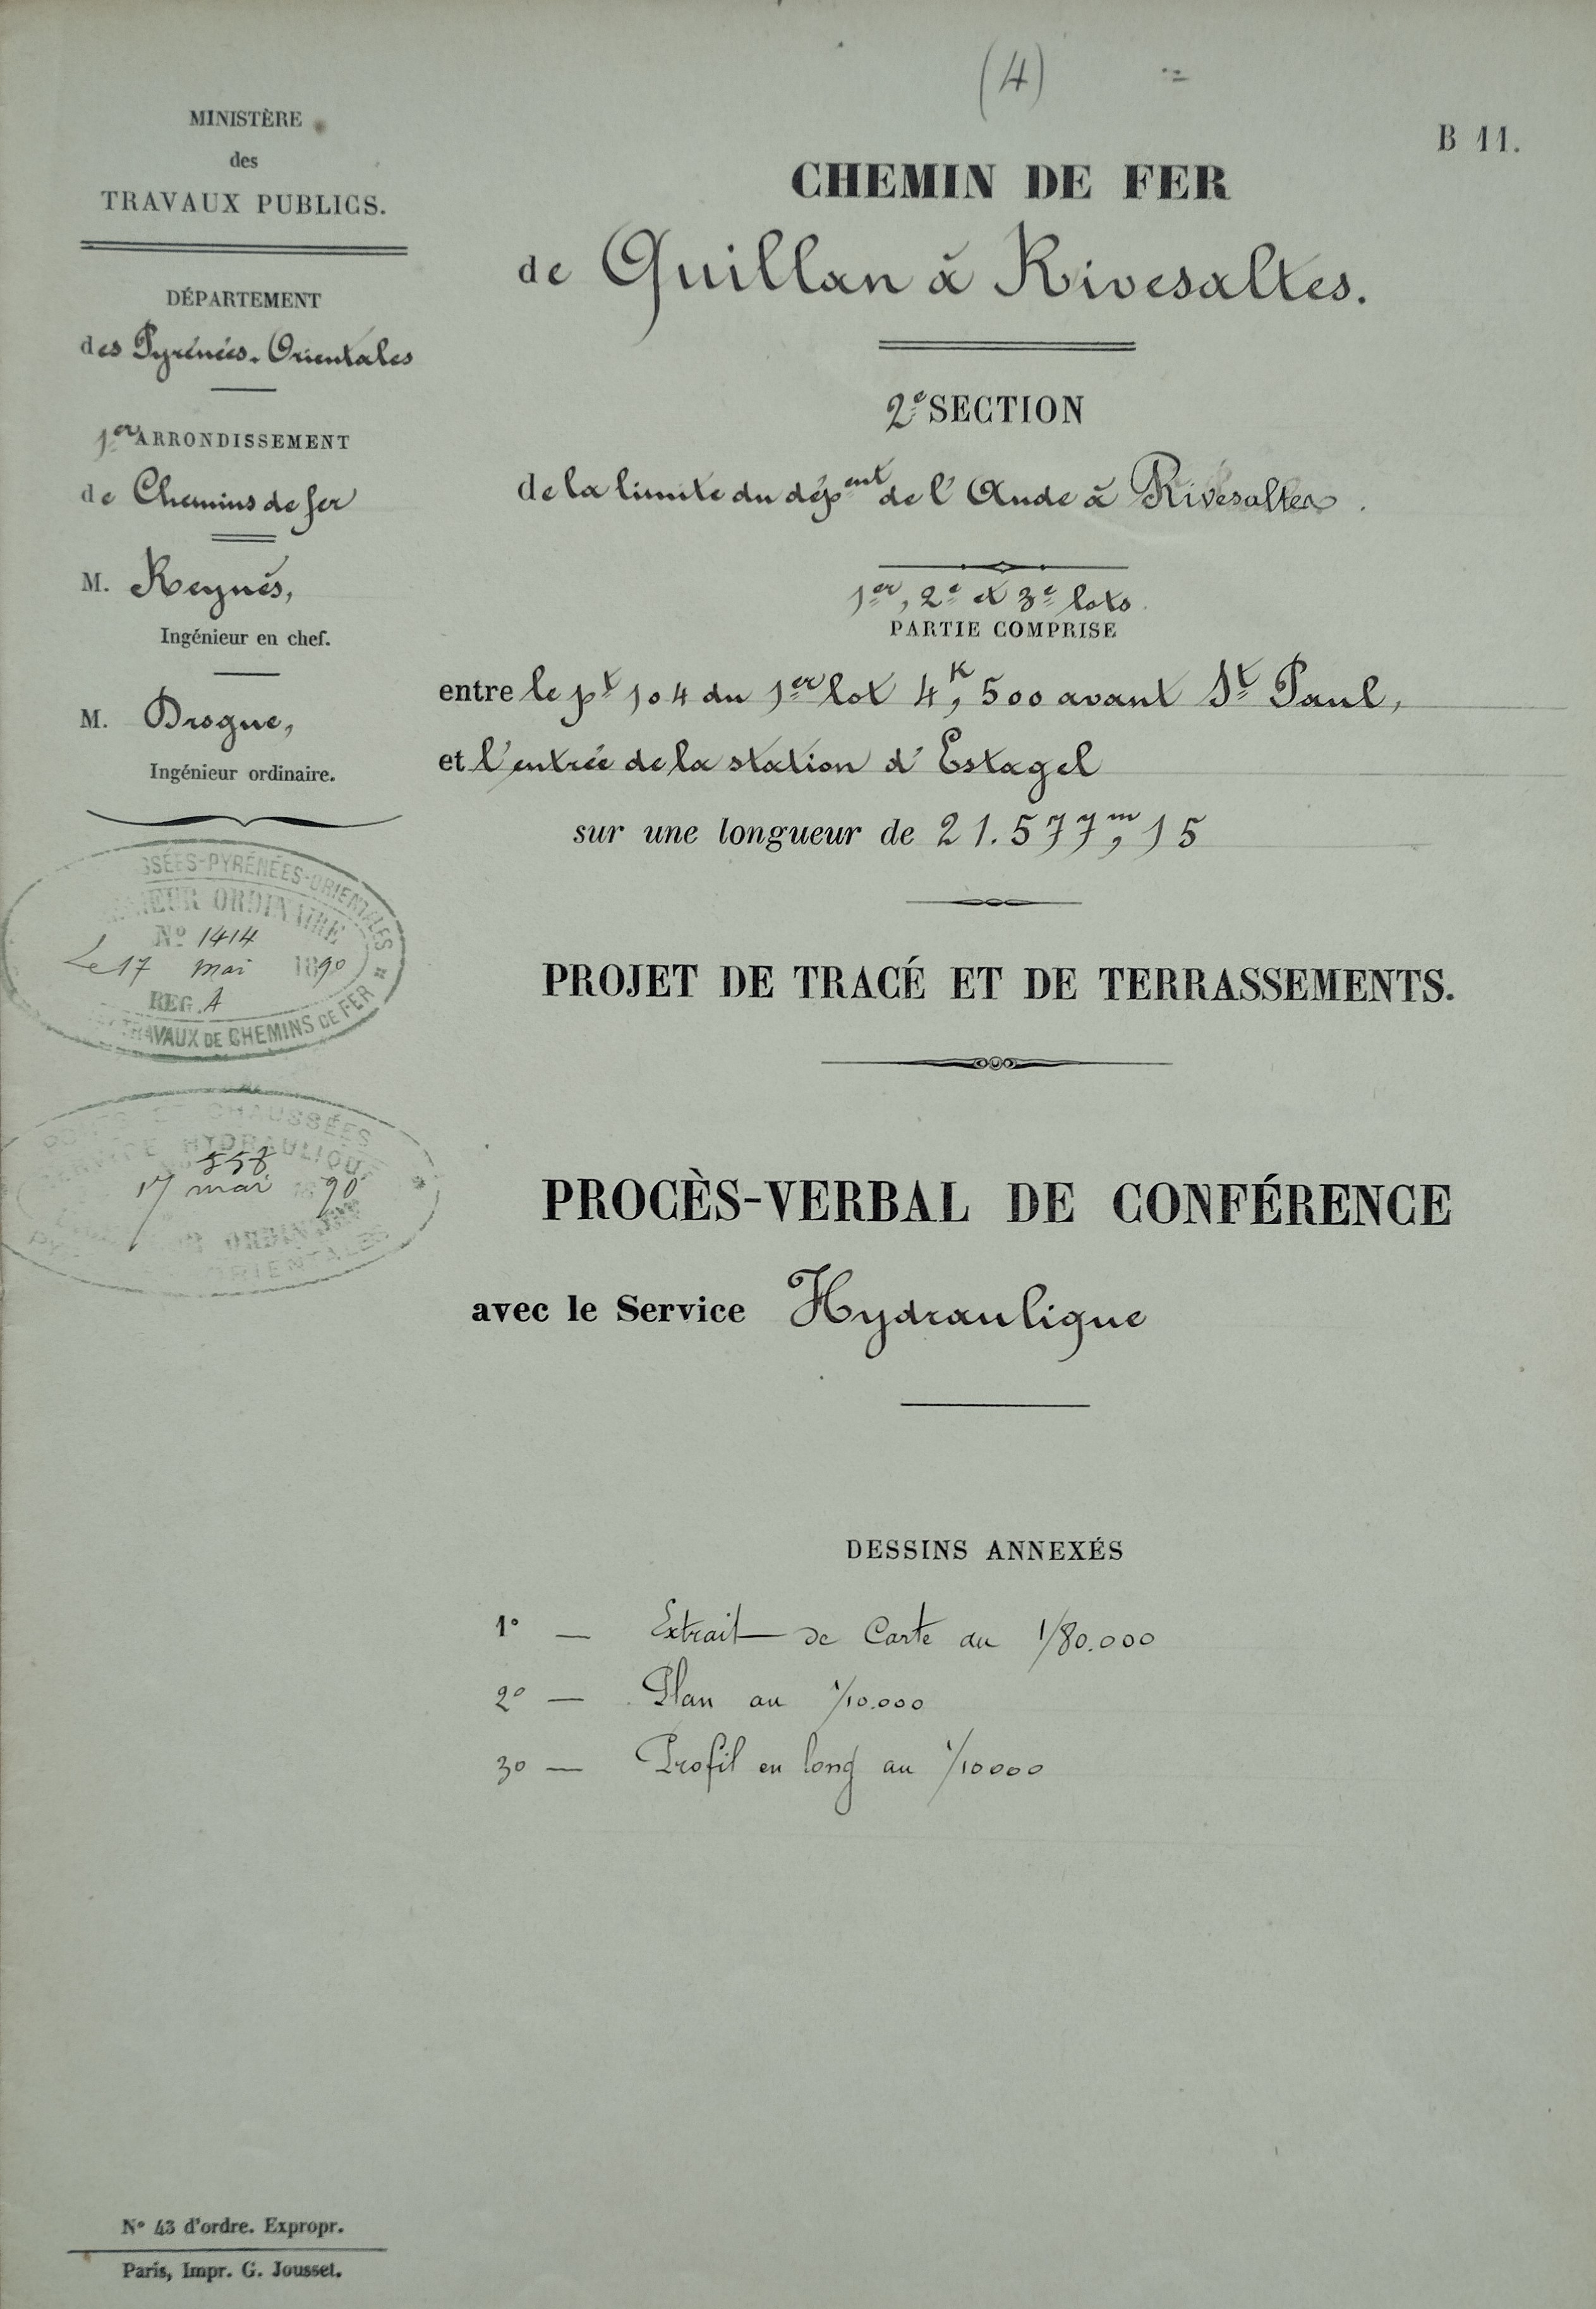 (4)
B 11.
MINISTÈRE
des
TRAVAUX PUBLICS.
DÉPARTEMENT
des Pyrénées-Orientales
1er ARRONDISSEMENT
de Chemins de fer
M. Reynès,
Ingénieur en chef.
M. Drogue,
Ingénieur ordinaire.
SSÉES-PYRÉNÉES-ORIENTALES
ORDINAIRE
No 1414
Le 17 mai 1890
REG. A
TRAVAUX DE CHEMINS DE FER
CHAUSSÉES
HYDRAULIQUE
17 mai 90
ORIENTALES
CHEMIN DE FER
de Quillan à Rivesaltes.
2e SECTION
de la limite du dépent de l'Aude à Rivesaltes.
1er, 2e et 3e lots.
PARTIE COMPRISE
entre le pt 104 du 1er lot 4K,500 avant St Paul,
et l'entrée de la station d'Estagel
sur une longueur de 21.577m,15
PROJET DE TRACÉ ET DE TERRASSEMENTS.
PROCÈS-VERBAL DE CONFÉRENCE
avec le Service Hydraulique
DESSINS ANNEXÉS
1° — Extrait de Carte au 1/80.000
2° — Plan au 1/10.000
3° — Profil en long au 1/10000
No 43 d'ordre. Expropr.
Paris, Impr. G. Jousset.